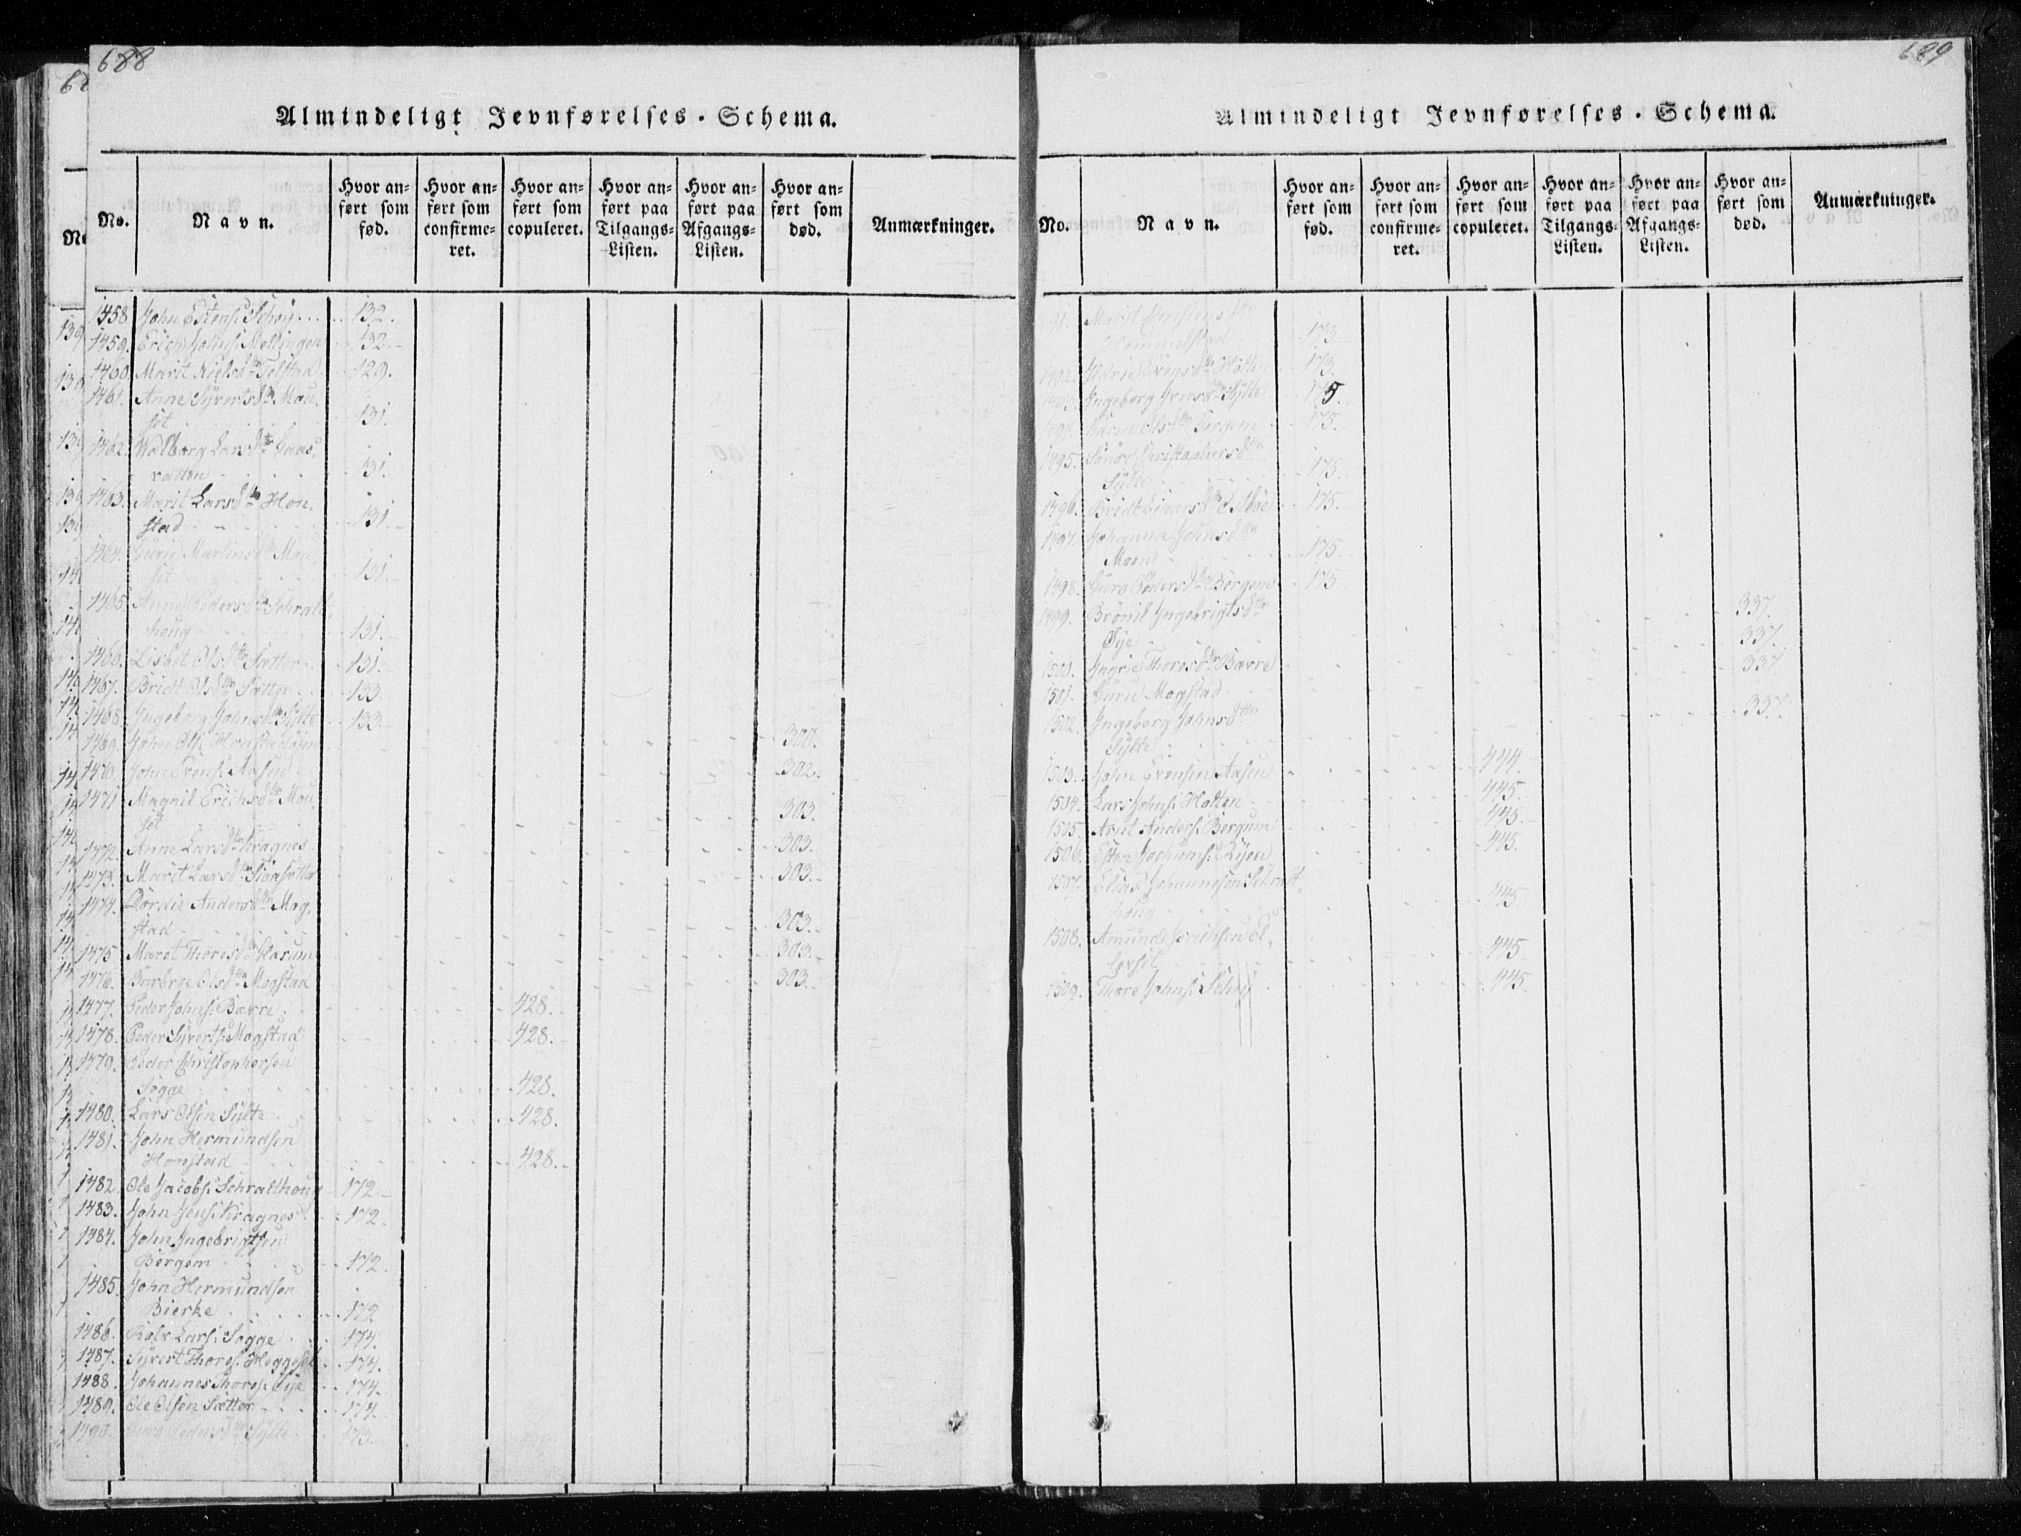 688
Almindeligt Jevnførelses-Schema.
No.
Navn.
Hvor an-
ført som
fød.
Hvor an-
ført som
confirme-
ret.
Hvor an-
ført som
copuleret.
Hvor an-
ført paa
Tilgangs-
Listen.
Hvor an-
ført paa
Afgangs-
Listen.
Hvor an-
ført som
død.
Anmærkninger.
1458 John Estens. Schøy 132.
1459. Erich Johns. Mellingen 32
1460 Marit Niels dtr Telstad 129.
1461. Anne Syverts dtr Mau-
set 131.
1462. Walborg Lars dtr Gaas-
vatten 131.
1463. Marit Lars dtr Hon-
stad 131
1464. Marthes dtr Mau-
set 131
1465. Anne Peders dtr Schralt-
houg 131.
1466. Lisbet Ols dtr Sætter 131
1467. Bridt Ols dtr Sætter 133
1468. Ingeborg Johns dtr Sylte 133
1469. John Ols. 300.
1470. John Evens. Aasen 302.
1471 Magnil Erichs dtr Mau-
set 303.
1472. Anne Lars dtr Kragnes 303.
1473. Marit Lars dtr 303.
1474. Dordie Anders dtr Mog-
stad 303.
1475 Maret Thores dtr 303.
1476. Barbroe Ols dtr Mogstad 303.
1477. Peder Johns. Bævre 428.
1478. Peder Syverts. Mogstad 428.
1479. Peder Christophersen
Søgge 428.
1480. Lars Olsen Sylte 428.
1481. John Hermundsen
Honstad 428.
1482. Ole Jacobs. Schralthoug 172
1483. John Jens. Kragnes 172.
1484. John Ingebrigtsen
Bergem 172.
1485. John Hermundsen
Bierke 172
1486. Lars. Søgge 174.
1487. Syvert Thores. Heggeset 174.
1488. Johannes Thores. Øye 174.
1489. Ole Olsen Sætter 174.
1490. Peders dtr Sylte 173.
689
Almindeligt Jevnførelses-Schema.
No.
Navn.
Hvor an-
ført som
fød.
Hvor an-
ført som
confirme-
ret.
Hvor an-
ført som
copuleret.
Hvor an-
ført paa
Tilgangs-
Listen.
Hvor an-
ført paa
Afgangs-
Listen.
Hvor an-
ført som
død.
Anmærkninger.
Marit dtr
173
1492. Evens dtr Halten 173.
Ingeborg dtr Sylte 175.
Ols dtr Bergem 175.
1495. Christophers dtr
Sylte 175.
1496. Bridt Einars dtr 175.
1497. Johanna Johns dtr
Moen 175
1498. Guro Peders dtr Bergem 175
1499. Brönil Ingebrigts dtr
Øye 337.
1500. Ingrie Thores dtr Bævre 337.
1501. Guru Mogstad 337
1502. Ingeborg Johns dtr
Sylte 337.
1503. John Evensen Aasen 444.
1504. Lars Johns. Halten 445.
1505. Arnt Anders. Bergum 445.
1506. Esten Jochums. 445.
1507. Elias Johannesen Schralt-
houg 445
1508. Amund
445
1509. Thore Johns. Schøy 445.